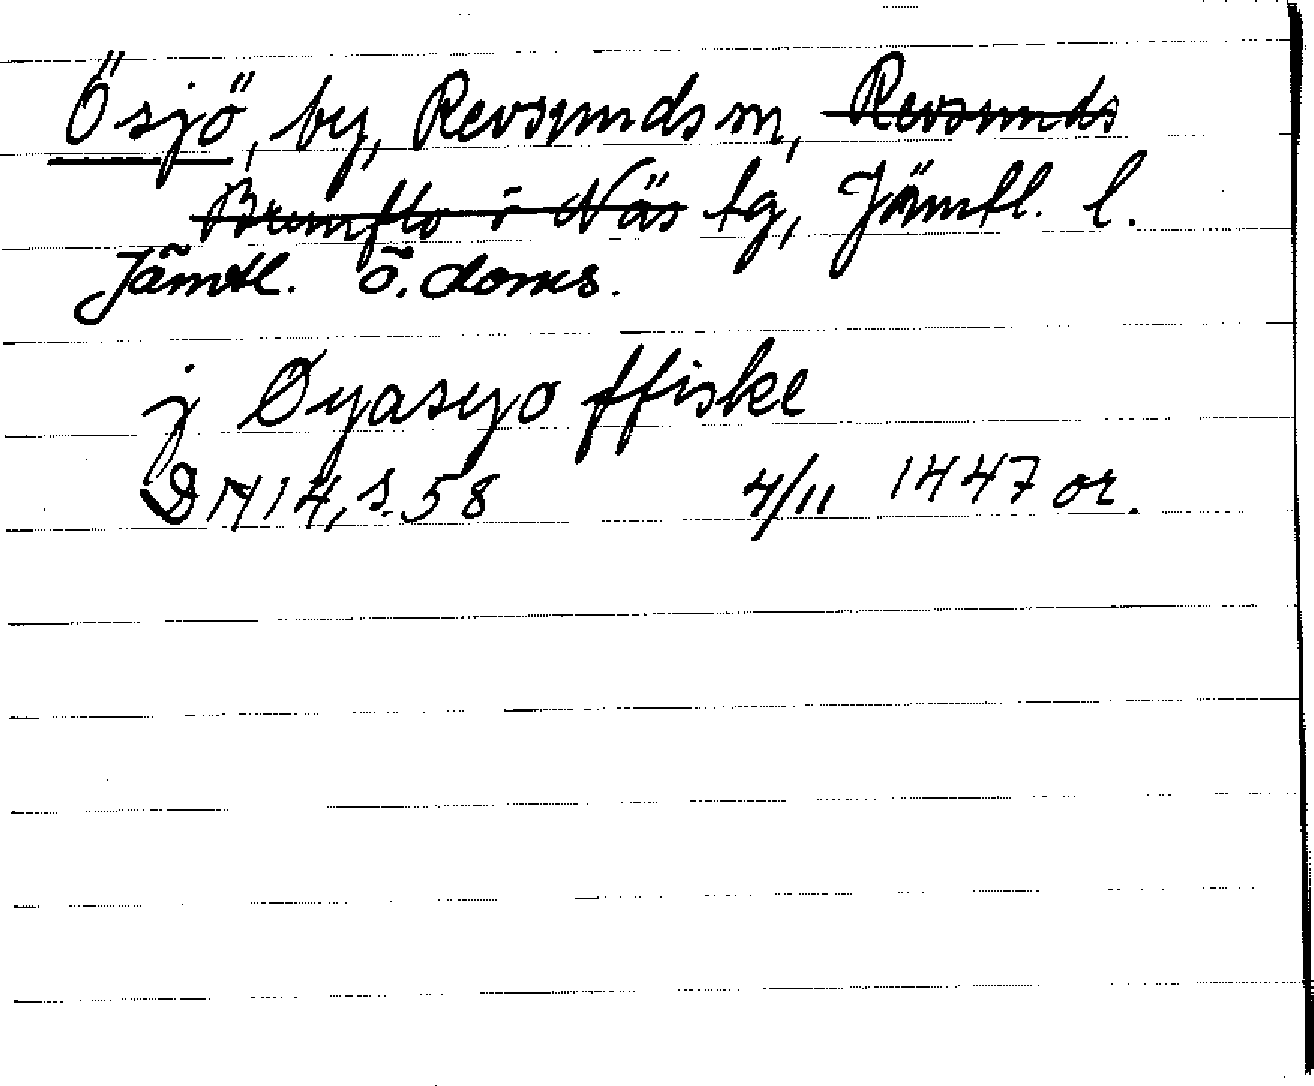 Ösjö, by, Revsunds sn, Revsunds
Brunflo o Näs tg, Jämtl. l.
Jämtl. ö. doms.
j Øyasyo ffiske
DN 14, s. 58 4/11 1447 or.